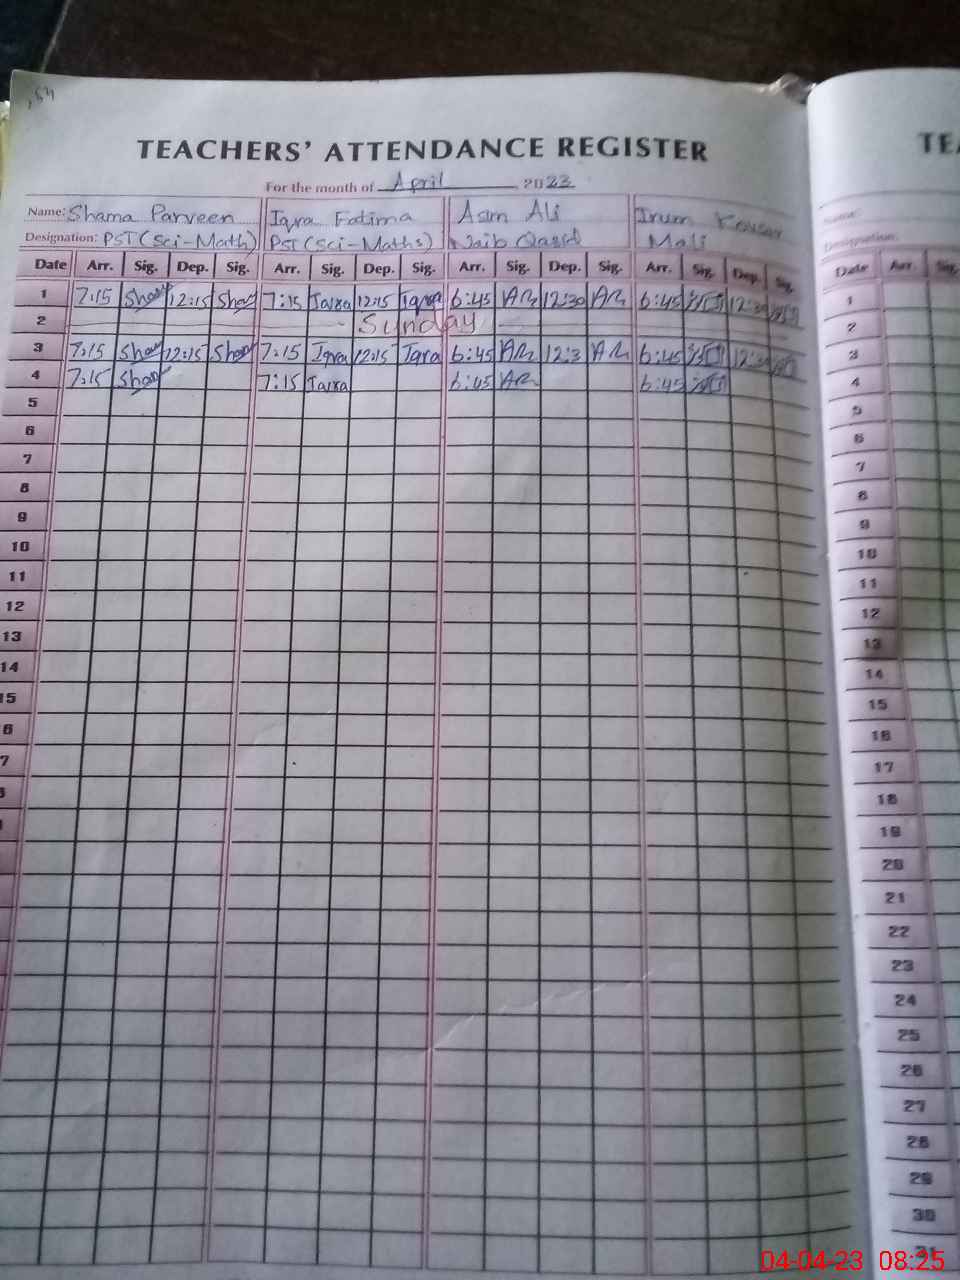 TEACHERS' ATTENDANCE REGISTER
For the month of April 2023
Name: Shama Parveen Iqra Fatima Asim Ali Irum Kousar
Designation: PST (Sci-Math) PST (Sci-Maths) Naib Qasid Mali
Date Arr. Sig. Dep. Sig. Arr. Sig. Dep. Sig. Arr. Sig. Dep. Sig. Arr. Sig. Dep. Sig.
1 7:15 Sham 12:15 Sham 7:15 Iqra 12:15 Iqra 6:45 12:30 6:45 12:30
2 Sunday
3 7:15 Sham 12:15 Sham 7:15 Iqra 12:15 Iqra 6:45 12:3 6:45 12:30
4 7:15 Sham 7:15 Iqra 6:45 6:45
5
6
7
8
9
10
11
12
13
14
15
6
7
TEA
Name:
Designation:
Date Arr. Sig.
1
2
3
4
5
6
7
8
9
10
11
12
13
14
15
16
17
18
19
20
21
22
23
24
25
26
27
28
29
30
31
04-04-23 08:25